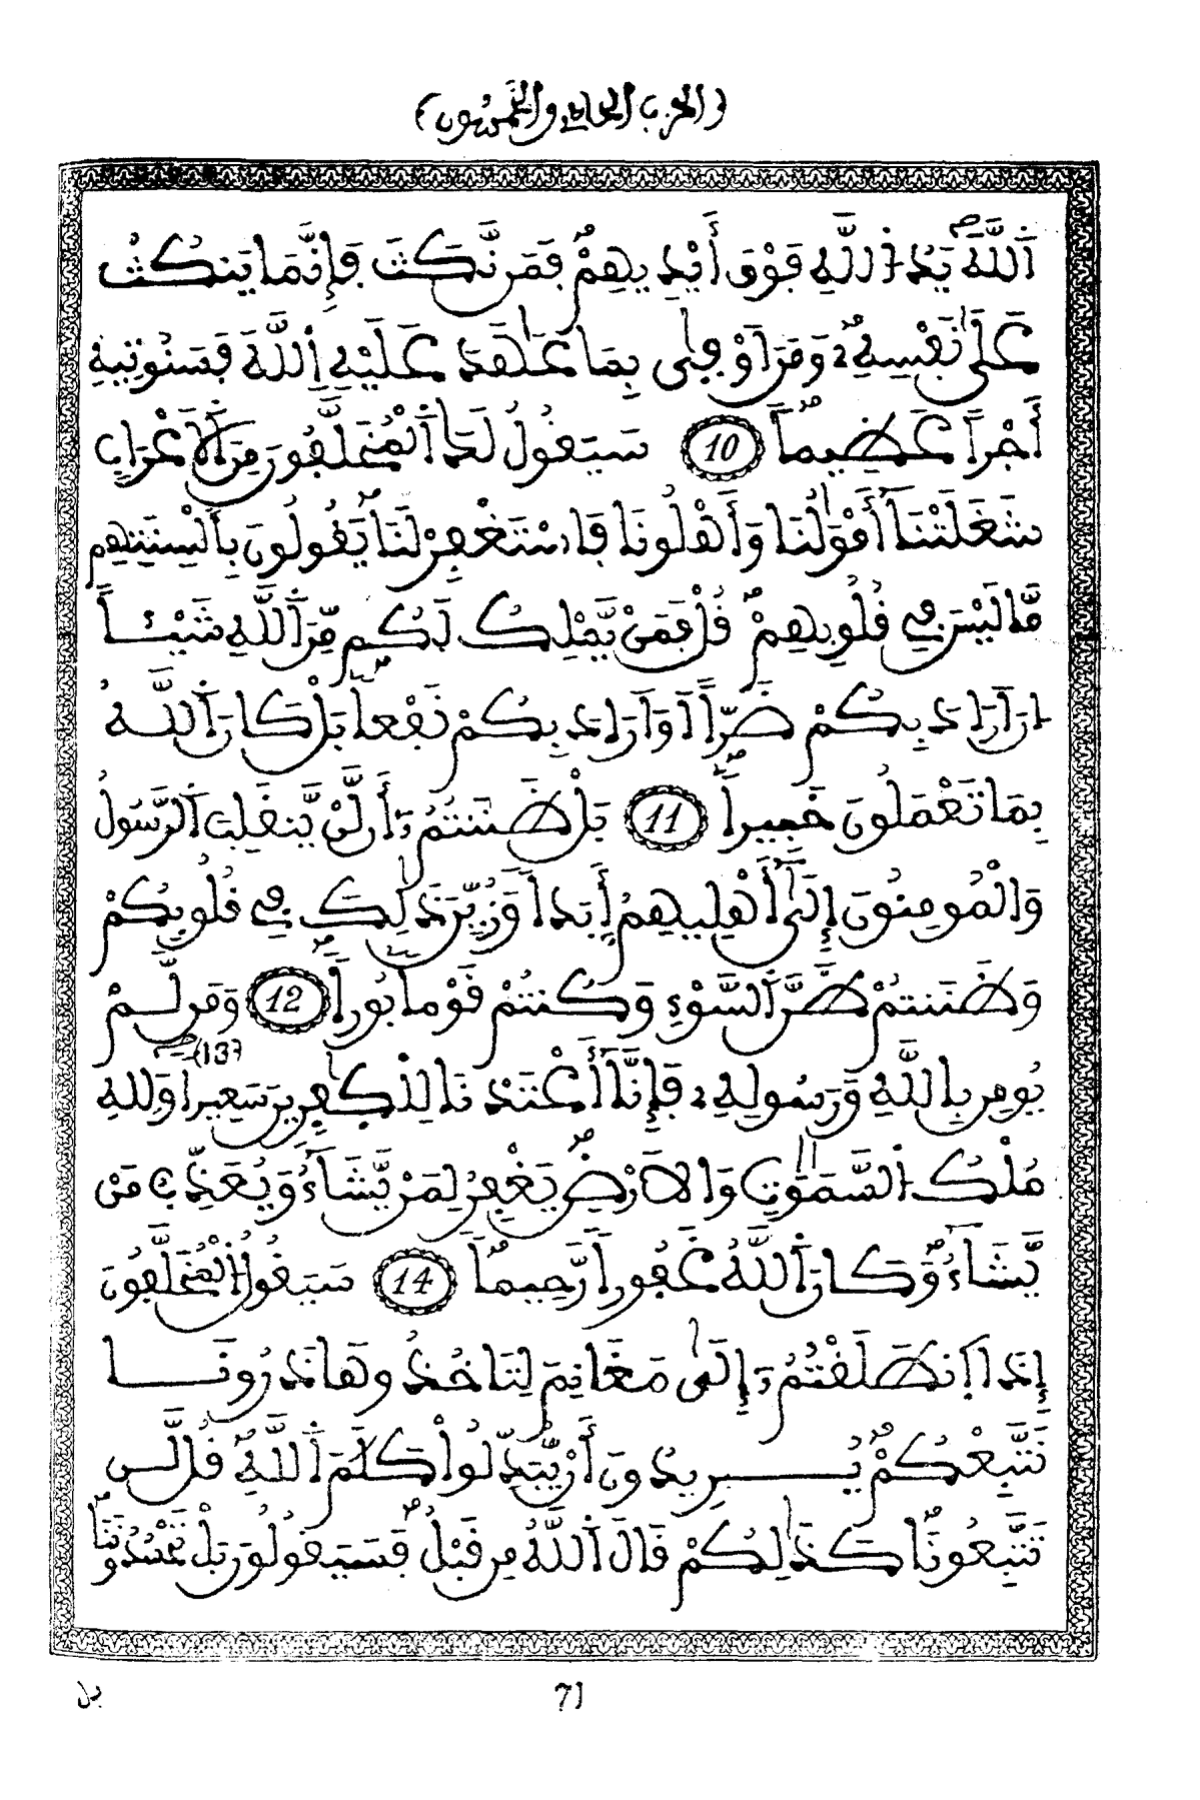 (الحزب الحادي والخمسون)
اَللَّهَ يَدُ اُللَّهِ فَوْقَ أَيْدِيهِمْ فَمَن نَّكَثَ فَإِنَّمَا يَنكُثُ
عَلَىٰ نَفْسِهِۦ وَمَنَ اَوْفىٰ بِمَا عَٰهَدَ عَلَيْهِ اِللَّهَ فَسَنُوتِيهِ
أَجْراً عَظِيماً 10 سَيَقُولُ لَكَ اَلْمُخَلَّفُونَ مِنَ اَلَاعْرَابِ
شَغَلَتْنَآ أَمْوَٰلُنَا وَأَهْلُونَا فَاسْتَغْفِرْ لَنَا يَقُولُونَ بِأَلْسِنَتِهِم
مَّا لَيْسَ فِي قُلُوبِهِمْ قُلْ فَمَنْ يَّمْلِكُ لَكُم مِّنَ اَللَّهِ شَيْـئـاً
اِنَ اَرَادَ بِكُمْ ضَرّاً اَوَ اَرَادَ بِكُمْ نَفْعاً بَلْ كَانَ اَللَّهُ
بِمَا تَعْمَلُونَ خَبِيراً 11 بَلْ ظَنَنتُمُۥٓ أَن لَّنْ يَّنقَلِبَ اَلرَّسُولُ
وَالْمُومِنُونَ إِلَىٰٓ أَهْلِيهِمُۥٓ أَبَداً وَزُيِّنَ ذَٰلِكَ فِي قُلُوبِكُمْ
وَظَنَنتُمْ ظَنَّ اَلسَّوْءِ وَكُنتُمْ قَوْماً بُوراً 12 وَمَن لَّمْ
يُومِنۢ بِاللَّهِ وَرَسُولِهِۦ فَإِنَّآ أَعْتَدْنَا لِلْكٰفِرِينَ سَعِيراً (13) وَلِلهِ
مُلْكُ اُلسَّمَٰوَٰتِ وَالَارْضِ يَغْفِرُ لِمَنْ يَّشَآءُ وَيُعَذِّبُ مَنْ
يَّشَآءُ وَكَانَ اَللَّهُ غَفُوراً رَّحِيماً 14 سَيَقُولُ اُلْمُخَلَّفُونَ
إِذَا اَنطَلَقْتُمُۥٓ إِلَىٰ مَغَانِمَ لِتَاخُذُوهَا ذَرُونَـا
نَتَّبِعْكُمْ يُـرِيدُونَ أَنْ يُّبَدِّلُواْ كَلَٰمَ اَللَّهِ قُل لَّن
تَتَّبِعُونَا كَذَٰلِكُمْ قَالَ اَللَّهُ مِن قَبْلُ فَسَيَقُولُونَ بَلْ تَحْسُدُونَنَا
بل
71